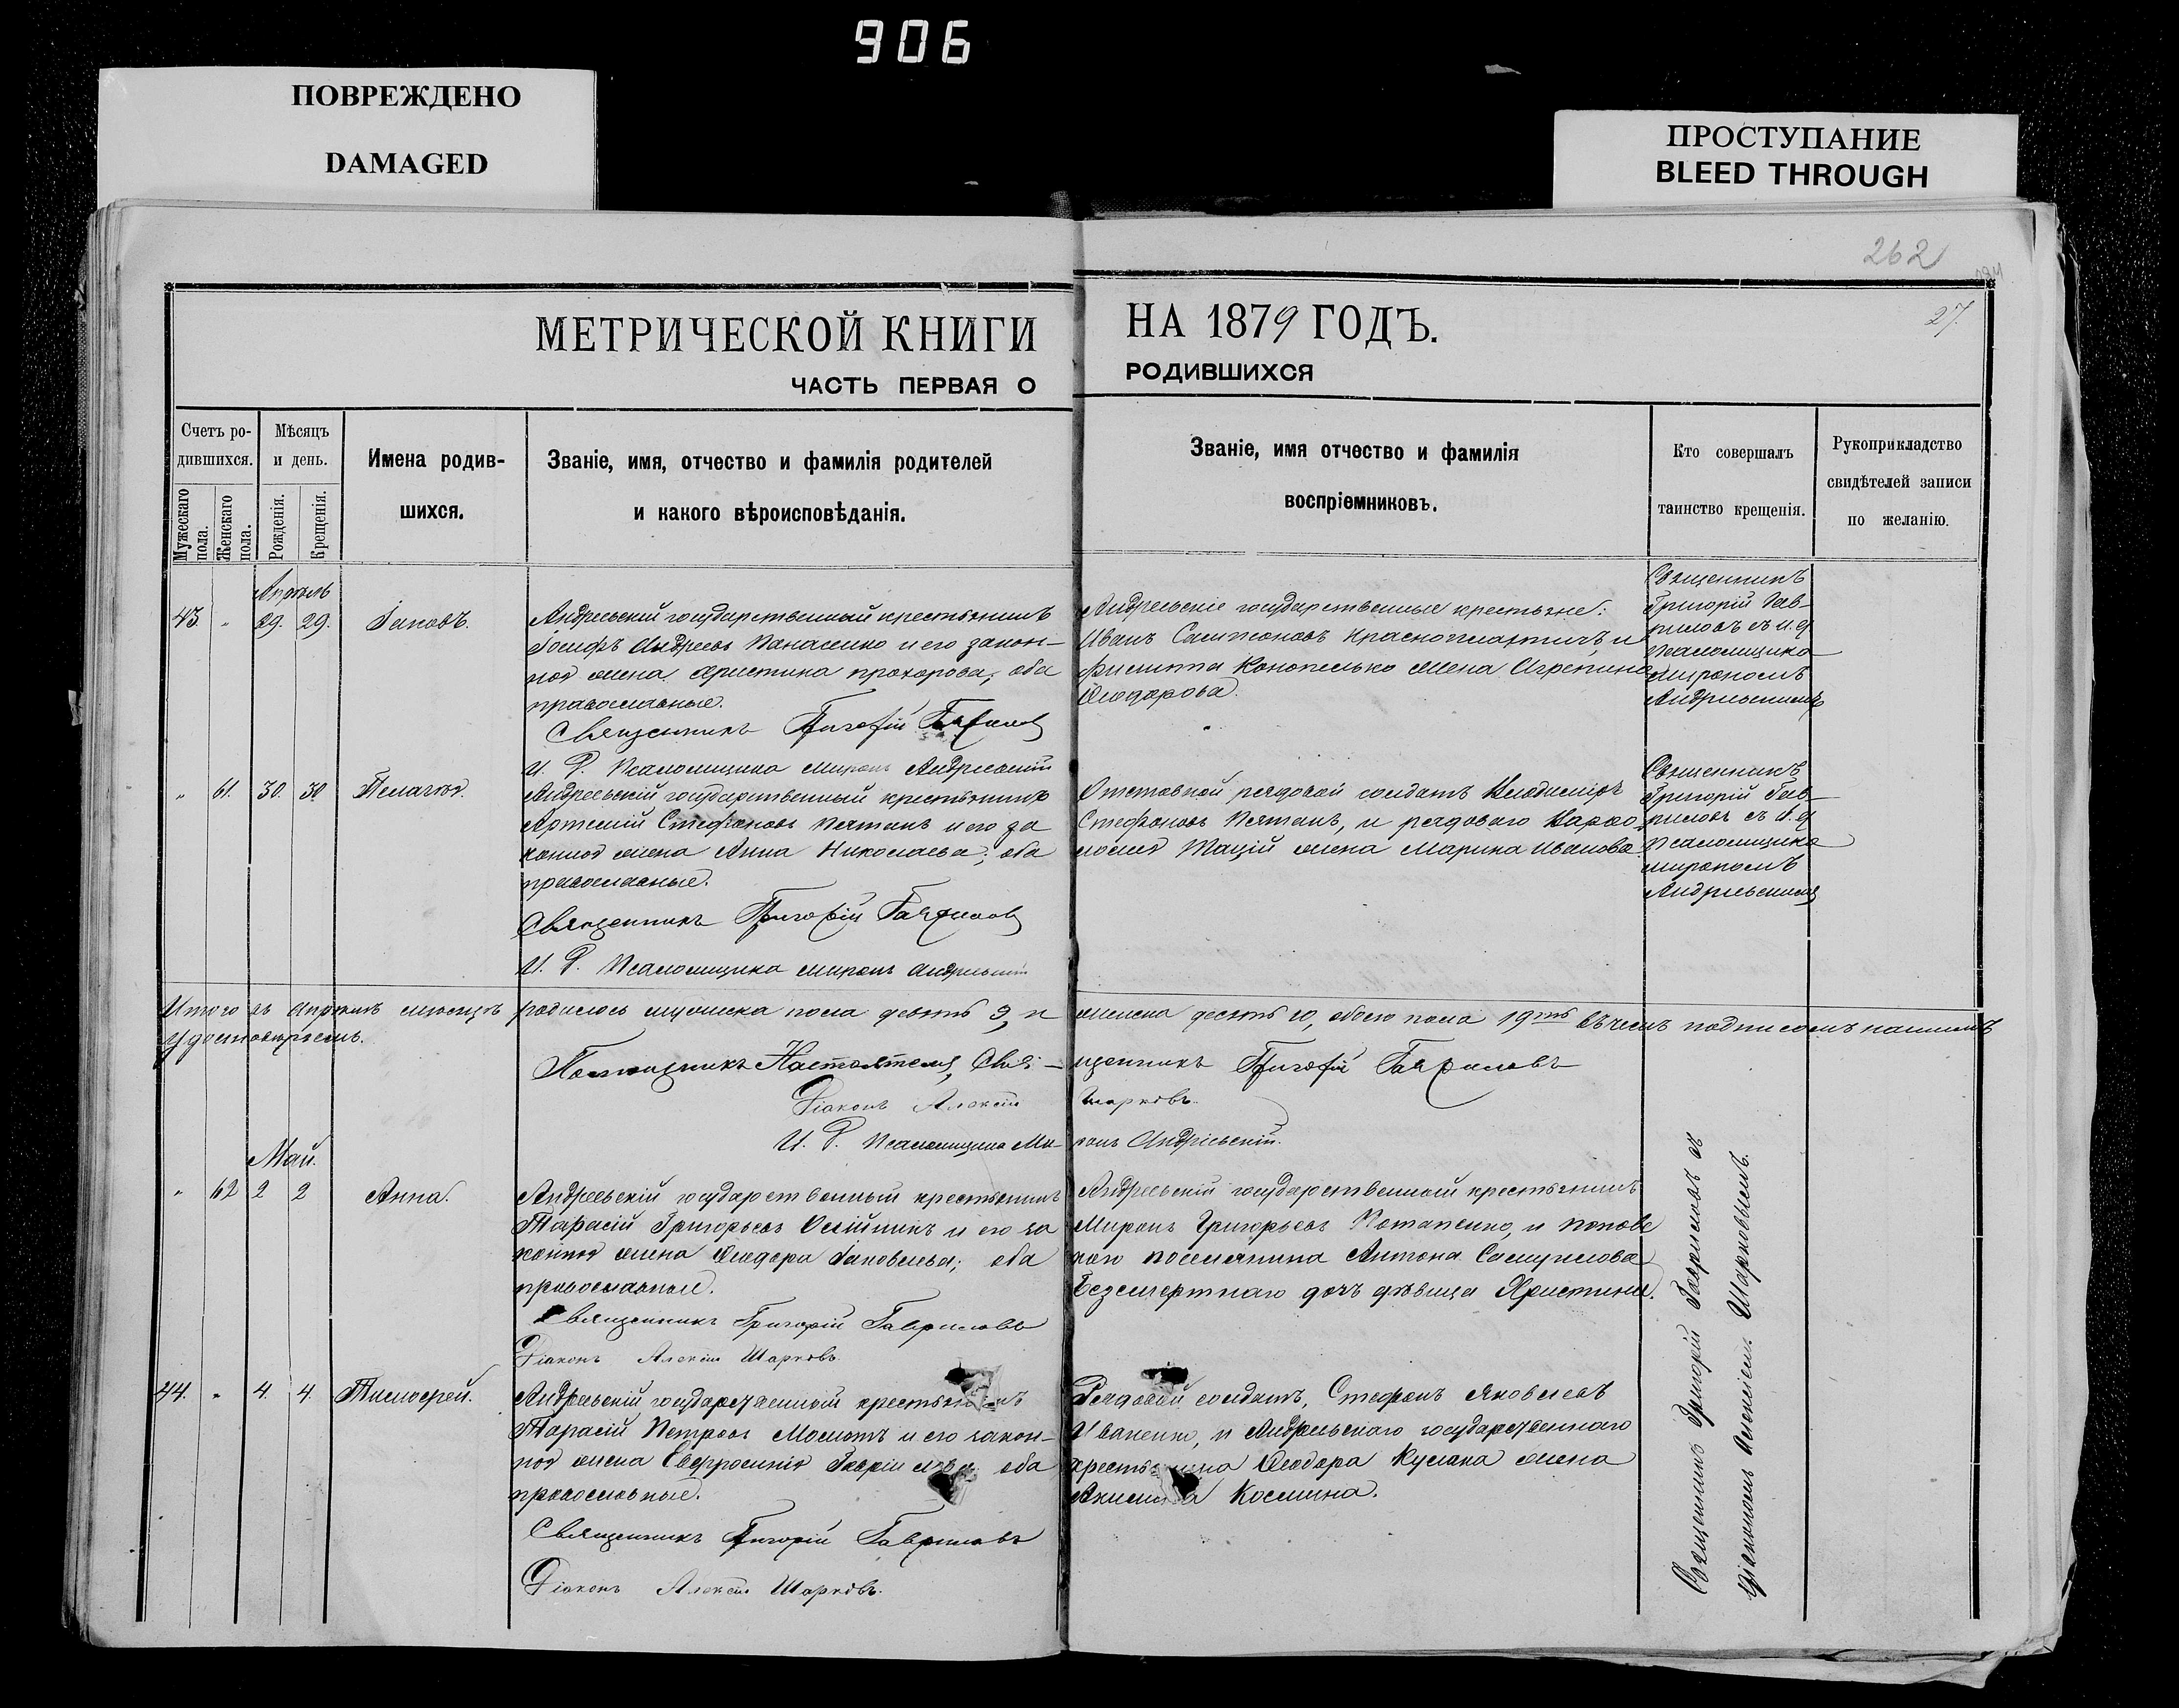 906
ПОВРЕЖДЕНО
DAMAGED
ПРОСТУПАНИЕ
BLEED THROUGH
262
27.
МЕТРИЧЕСКОЙ КНИГИ НА 1879 ГОДЪ.
ЧАСТЬ ПЕРВАЯ О РОДИВШИХСЯ
Счетъ ро-
дившихся.
Мужескаго
пола.
Женскаго
пола.
Мѣсяцъ
и день.
Рожденія.
Крещенія.
Имена родив-
шихся.
Званіе, имя, отчество и фамилія родителей
и какого вѣроисповѣданія.
Званіе, имя отчество и фамилія
воспріемниковъ.
Кто совершалъ
таинство крещенія.
Рукоприкладство
свидѣтелей записи
по желанію.
Апрѣль
43. " 29. 29. Іаковъ.
Андреевскій государственный крестьянинъ
Іосифъ Андреевъ Панасенко и его закон-
ная жена Христина Прохорова, оба
православные.
Священникъ Григорій Гавриловъ
И. Д. Псаломщика Миронъ Андріевскій
Андреевскіе государственные крестьяне:
Иванъ Сампсоновъ и
Филиппа Конопелько жена Агрепина
Ѳеодорова.
Священникъ
Григорій Гав-
риловъ съ и. д.
Псаломщика
Мирономъ
Андріевскимъ
" 61. 30. 30. Пелагія.
Андреевскій государственный крестьянинъ
Артемій Стефановъ Пятакъ и его за
конная жена Анна Николаева; оба
православные.
Священникъ Григорій Гавриловъ
И. Д. Псаломщика Миронъ Андріевскій
Отставной рядовой солдатъ Владиміръ
Стефановъ Пятакъ, и рядоваго Варѳо
ломея жена Марина Иванова.
Священникъ
Григорій Гав-
риловъ съ и. д.
Псаломщика
Мирономъ
Андріевскимъ
Итого въ Апрѣлѣ мѣсяцѣ родилось мужеска пола девять 9, и женска десять 10, обоего пола 19ть въ чемъ подписомъ нашимъ
удостовѣряемъ.
Помощникъ Настоятеля, Священникъ Григорій Гавриловъ
Діаконъ Алексій Шарковъ.
И. Д. Псаломщика Миронъ Андріевскій.
Май.
" 62 2 2 Анна.
Андреевскій государственный крестьянинъ
Тарасій Григорьевъ Олійникъ и его за
конная жена Ѳеодора Іаковлева; оба
православные.
Священникъ Григорій Гавриловъ
Діаконъ Алексій Шарковъ.
Андреевскій государственный крестьянинъ
Миронъ Григорьевъ Потапенко, и попов
каго поселянина Антона Самуилова
Безсмертнаго дочь дѣвица Христина.
Священникъ Григорій Гавриловъ съ
Діакономъ Алексіемъ Шарковымъ.
44. " 4. 4. Тимоѳей.
Андреевскій государственный крестьянинъ
Тарасій Петровъ и его закон-
ная жена Евфросинія оба
православные.
Священникъ Григорій Гавриловъ
Діаконъ Алексій Шарковъ.
Рядовой солдатъ, Стефанъ Яковлевъ
Иваненко, и Андреевскаго государственнаго
крестьянина Ѳеодора Кулака жена
Космина.